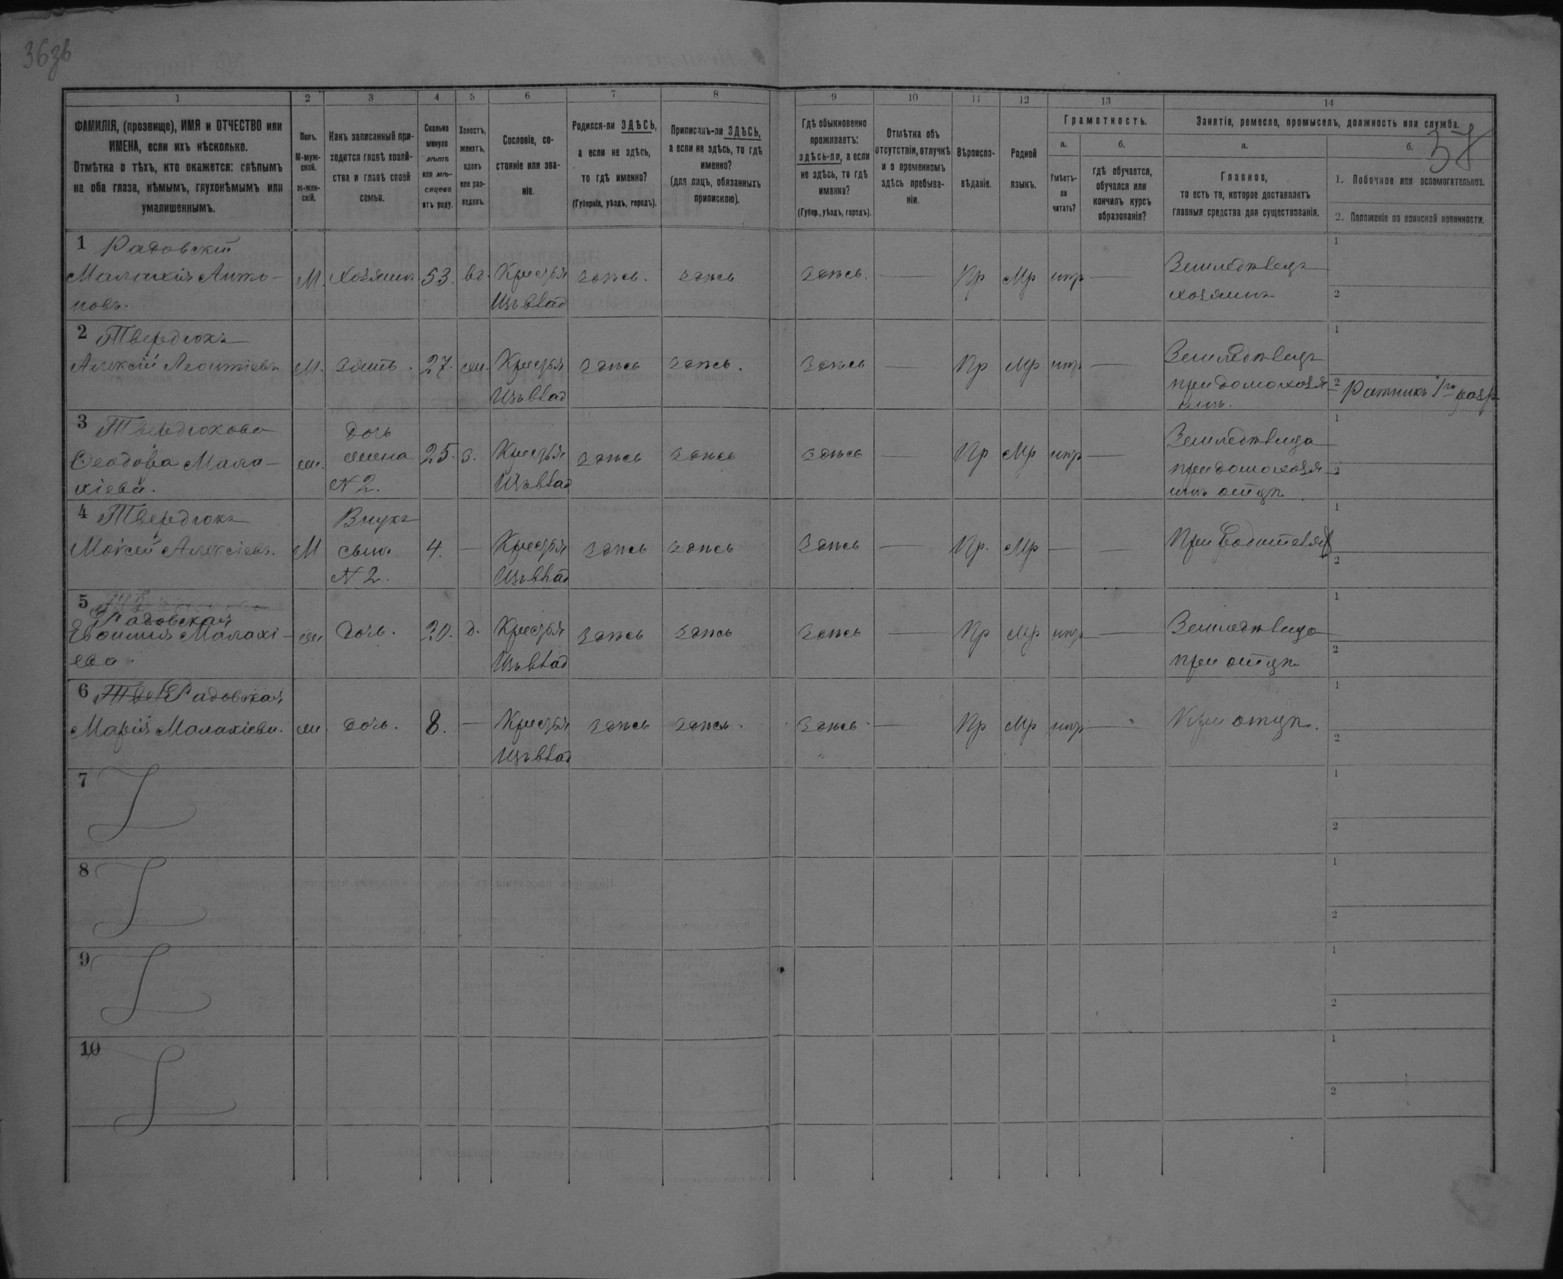 363б
37
1 2 3 4 5 6 7 8 9 10 11 12 13 14
ФАМИЛІЯ, (прозвище), ИМЯ и ОТЧЕСТВО или
ИМЕНА, если ихъ нѣсколько.
Отмѣтка о тѣхъ, кто окажется: слѣпымъ
на оба глаза, нѣмымъ, глухонѣмымъ или
умалишеннымъ.
Полъ.
М-муж-
ской.
Ж-жен-
скій.
Какъ записанный при-
ходится главѣ хозяй-
ства и главѣ своей
семьи.
Сколько
минуло
лѣтъ
или мѣ-
сяцевъ
отъ роду.
Холостъ,
женатъ,
вдовъ
или раз-
веденъ.
Сословіе, со-
стояніе или зва-
ніе.
Родился-ли ЗДѢСЬ,
а если не здѣсь,
то гдѣ именно?
(Губернія, уѣздъ, городъ).
Приписанъ-ли ЗДѢСЬ,
а если не здѣсь, то гдѣ
именно?
(для лицъ, обязанныхъ
припискою).
Гдѣ обыкновенно
проживаетъ:
здѣсь-ли, а если
не здѣсь, то гдѣ
именно?
(Губер., уѣздъ, городъ).
Отмѣтка объ
отсутствіи, отлучкѣ
и о временномъ
здѣсь пребыва-
ніи.
Вѣроиспо-
вѣданіе.
Родной
языкъ.
Грамотность.
а.
Умѣетъ-
ли
читать?
б.
гдѣ обучается,
обучался или
кончилъ курсъ
образованія?
Занятіе, ремесло, промыселъ, должность или служба.
а.
Главное,
то есть то, которое доставляетъ
главныя средства для существованія.
б.
1. Побочное или вспомогательное.
2. Положеніе по воинской повинности.
1 Радовскій
Малахія Анто-
новъ.
М. хозяинъ 53. вд. Крестьян здѣсь. здѣсь здѣсь. — Пр Мр нтр —
Земледѣлецъ
хозяинъ
1
2
2 Твердюкъ
Алексій Леонтіевъ
М. зять. 27. жн. Крестьян здѣсь здѣсь. здѣсь — Пр Мр нтр —
Земледѣлецъ
при домохозя-
инѣ.
1
2 Ратникъ 1го разр
3 Твердюкова
Ѳеодова Мала-
хіева.
жн.
дочь
жена
N 2.
25. з. Крестьян здѣсь здѣсь здѣсь — Пр Мр нтр —
Земледѣлица
при домохозя-
инѣ отцѣ.
1
2
4 Твердюкъ
Мойсей Алексіевъ.
М
Внукъ
сынъ
N 2.
4. — Крестьян здѣсь здѣсь здѣсь — Пр. Мр — —
При родителях
1
2
5 Радовская
Евфимія Малахі-
ева.
жн дочь. 20. д. Крестьян здѣсь здѣсь здѣсь — Пр Мр нтр —
Земледѣлица
при отцѣ
1
2
6 Радовская
Марія Малахіева.
жн. дочь. 8. — Крестьян здѣсь здѣсь. здѣсь. — Пр Мр нтр —
При отцѣ.
1
2
7
1
2
8
1
2
9
1
2
10
1
2